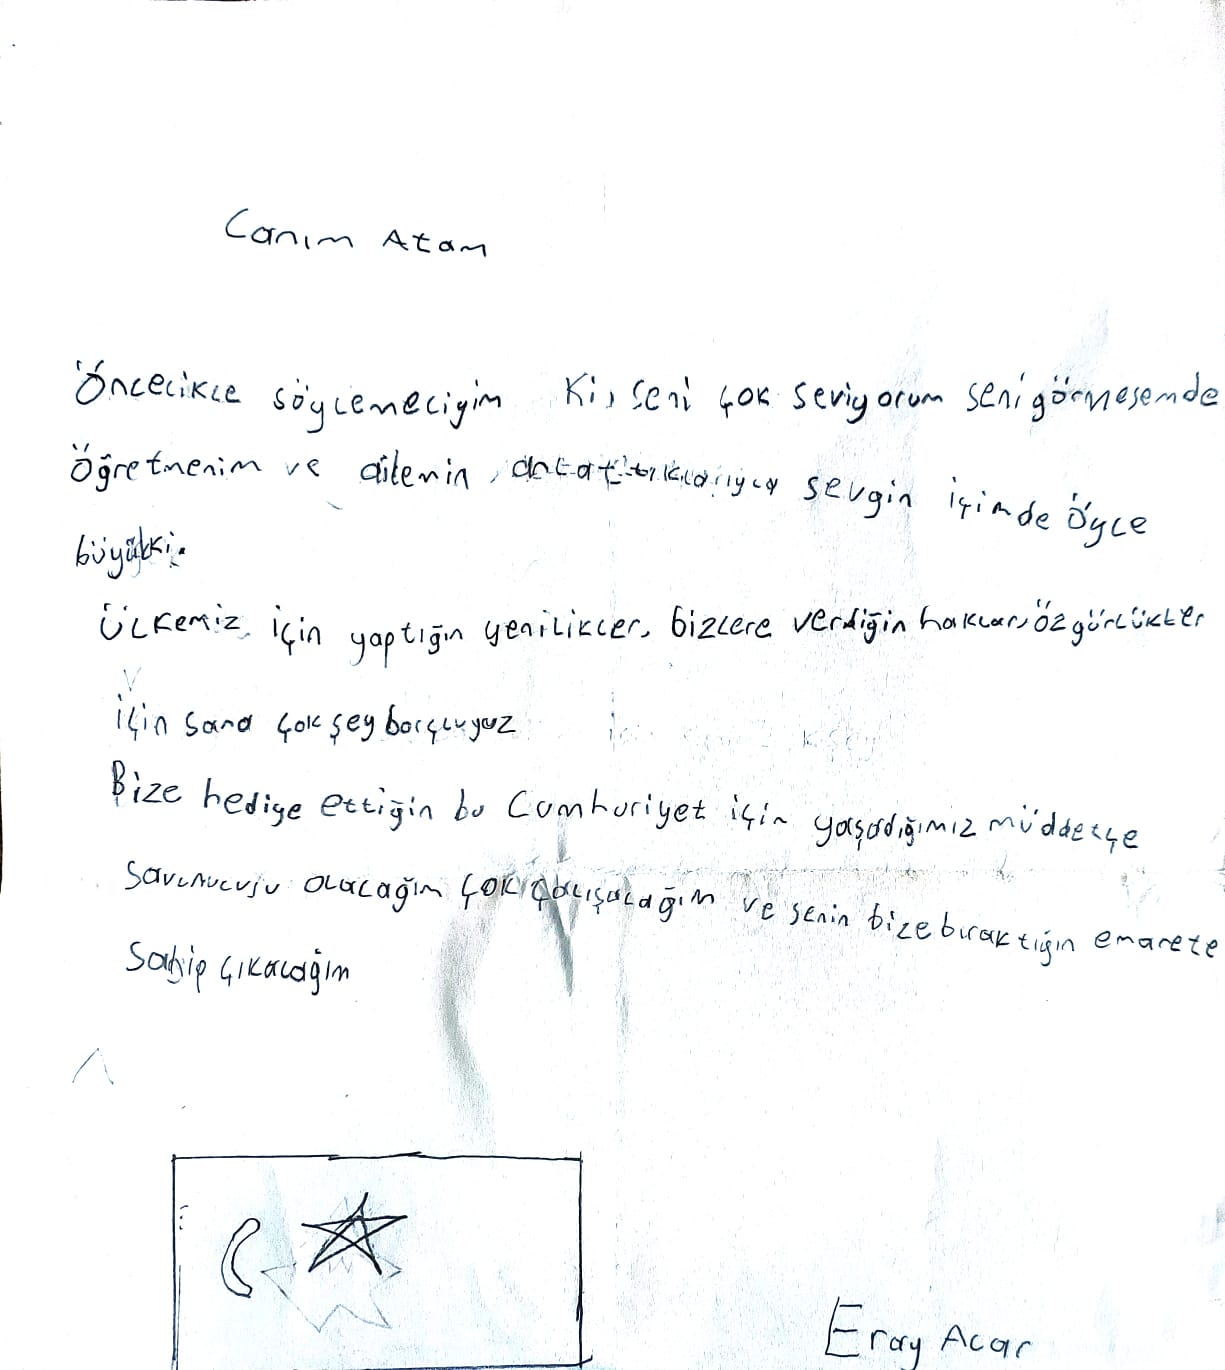 Canım Atam
Öncelikle söylemeliyim ki, seni çok seviyorum seni görmesemde
Öğretmenim ve ailemin, anlattıklarıyla sevgin içimde Öyle
büyükki.
Ülkemiz, için yaptığın yenilikler, bizlere verdiğin haklar, özgürlükler
için sana çok şey borçluyuz
Bize hediye ettiğin bu Cumhuriyet için yaşadığımız müddetçe
Savunucusu olacağım çok çalışacağım ve senin bize bıraktığın emanete
Sahip çıkacağım
Eray Acar